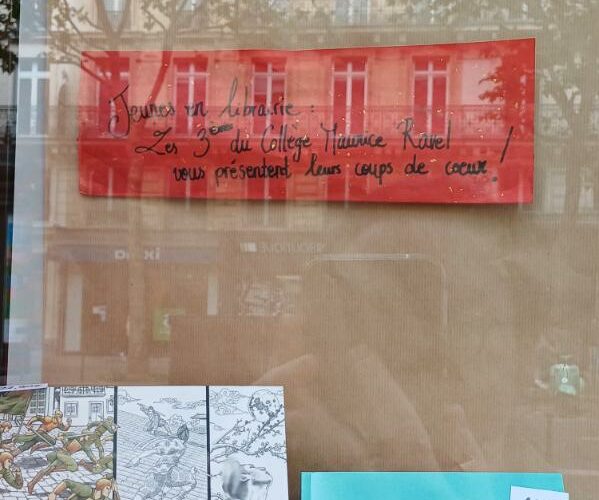 Jeunes en librairie :
Les 3èmes du Collège Maurice Ravel
vous présentent leurs coups de coeur !